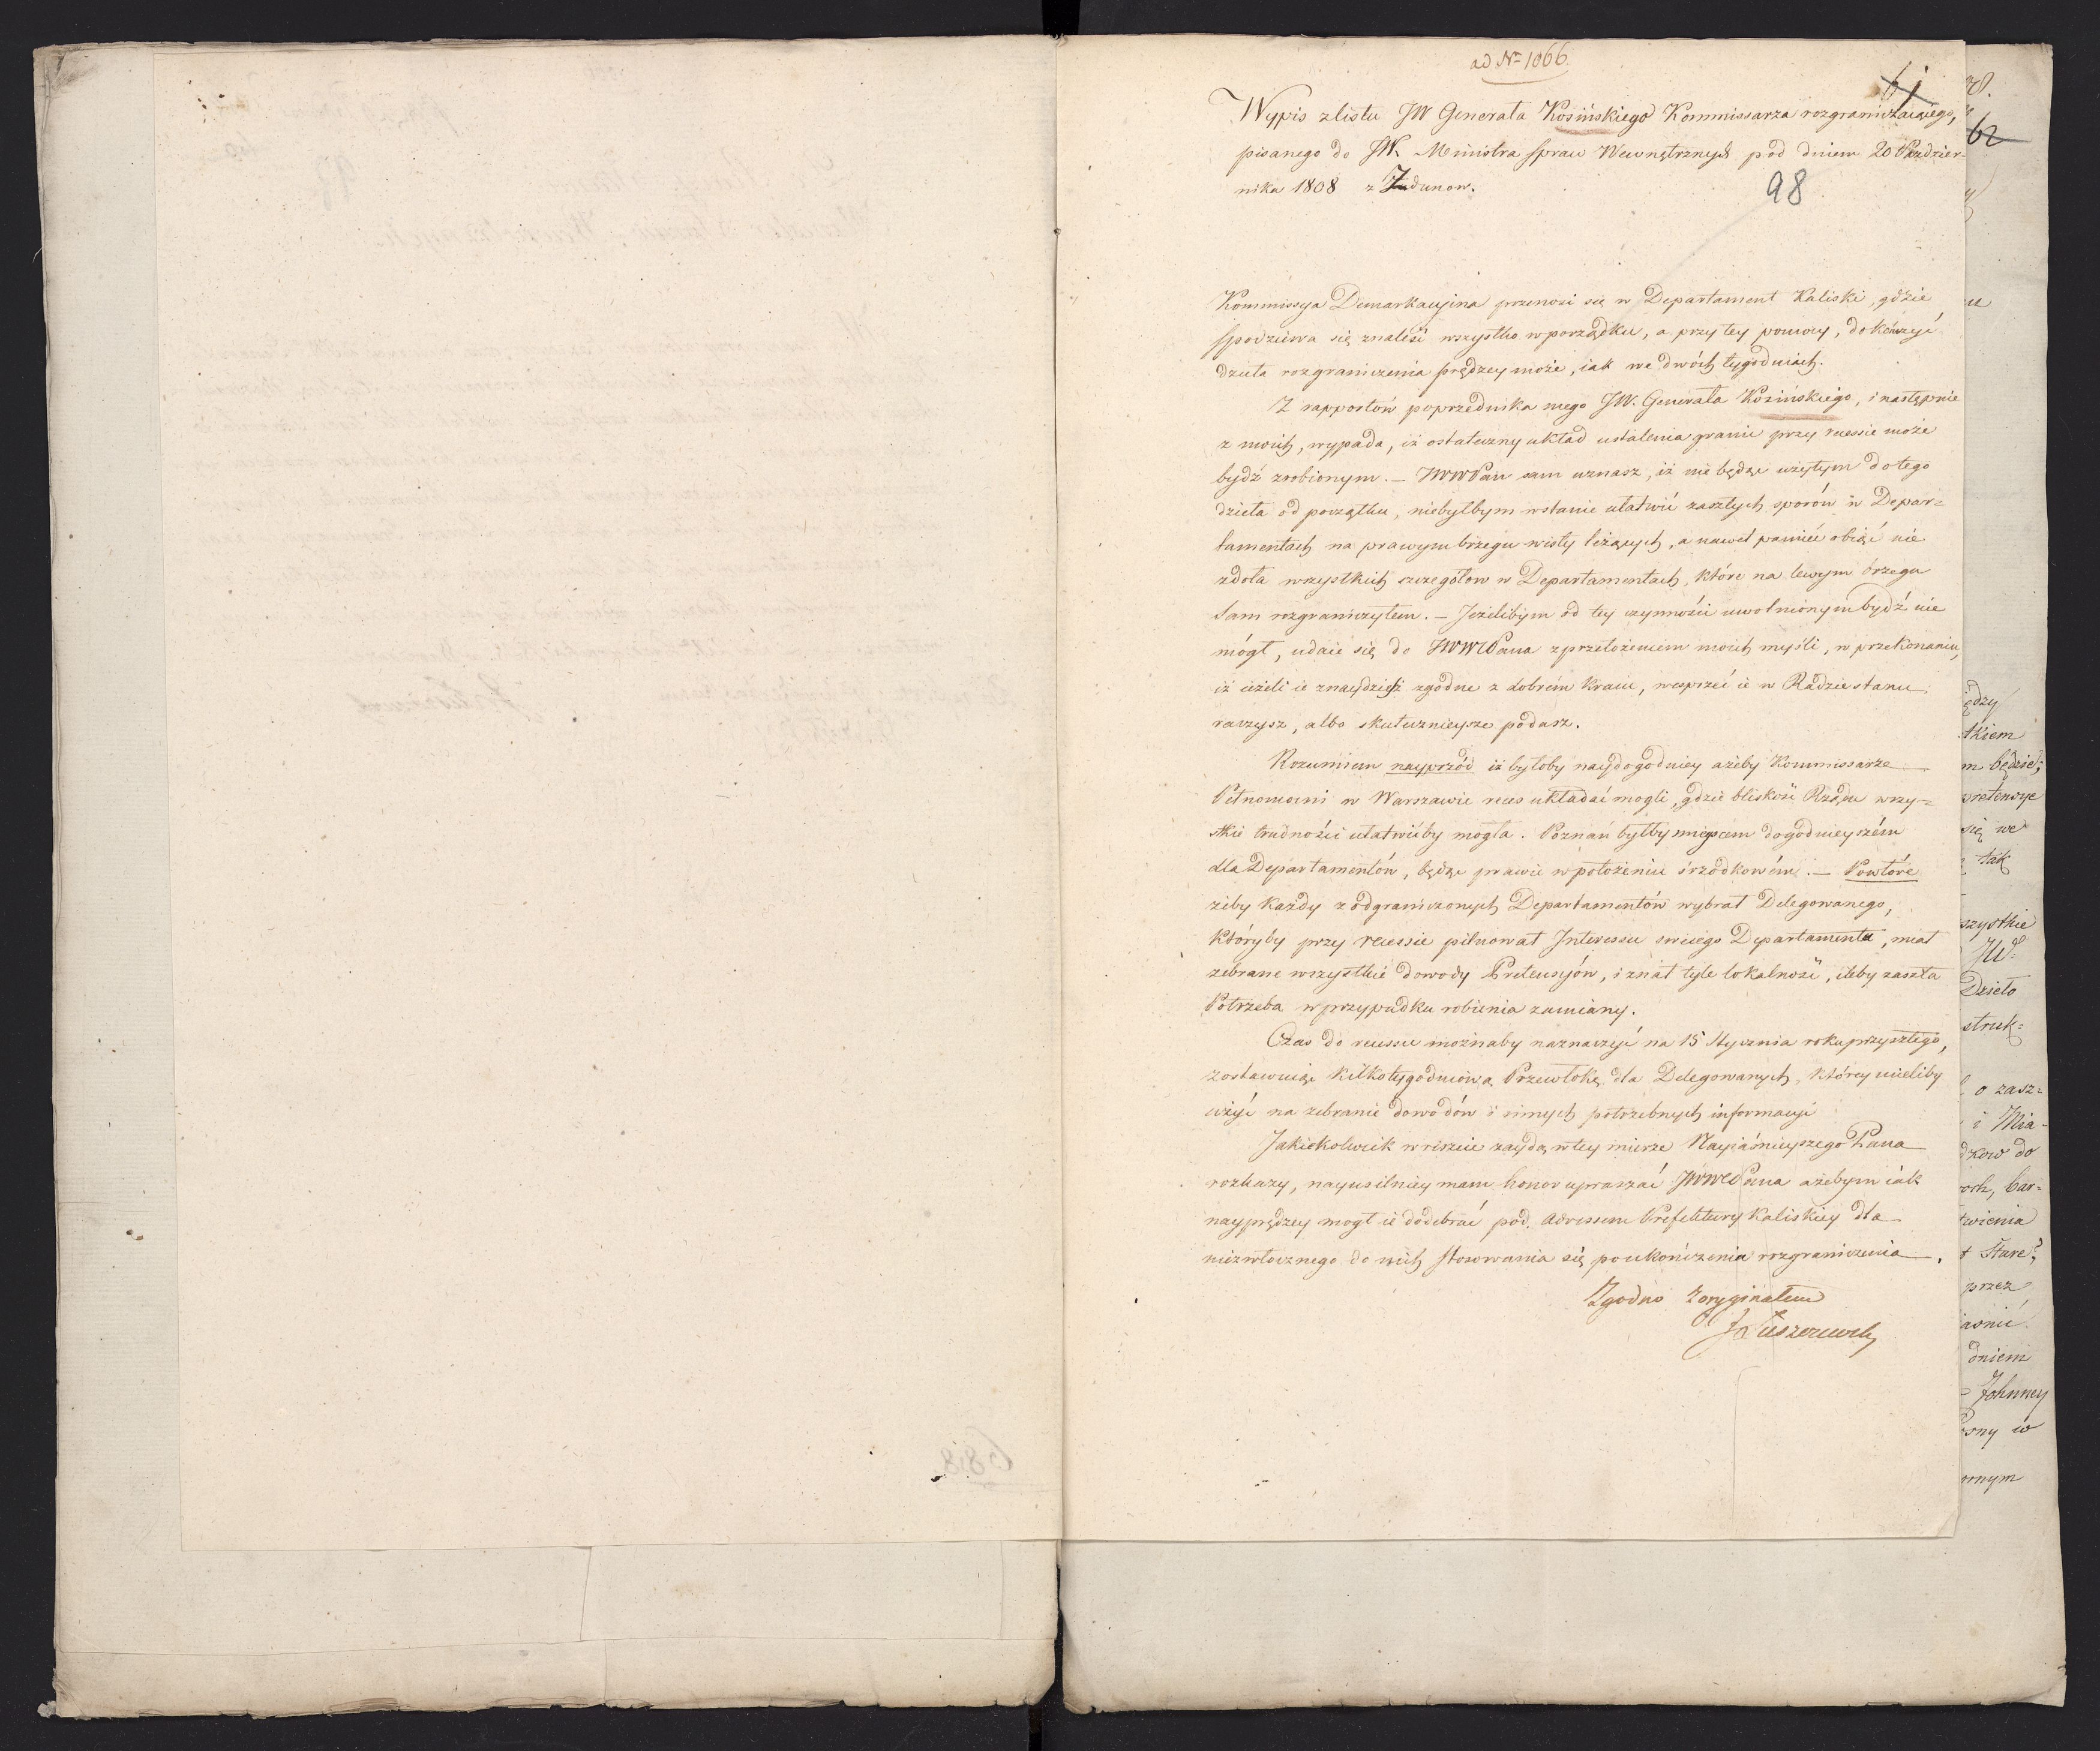 ad Nr 1066.
61
Wypis z listu JW Generała Kosińskiego Kommissarza rozgraniczaiącego,
pisanego do JW. Ministra Spraw Wewnętrznych pod dniem 20 Paździer-
nika 1808 z Zdunow.
98
Kommissya Demarkacyina przenosi się w Departament Kaliski, gdzie
spodziewa się znaleść wszystko w porządku, a przy tey pomocy, dokończyć
dzieła rozgraniczenia prędzey może, iak we dwóch tygodniach.
Z rapportów poprzednika mego JW. Generała Kosińskiego, i następnie
z moich, wypada, iż ostateczny układ ustalenia granic przy recessie może
bydź zrobionym. – JWWPan sam uznasz, iż nie będąc użytym do tego
dzieła od początku, niebyłbym w stanie ułatwić zaszłych sporów w Depar=
tamentach na prawym brzegu wisły leżących, a nawet pamięć obiąć nie
zdoła wszystkich szczegółow w Departamentach, które na lewym brzegu
Sam rozgraniczyłem. – Jeżelibym od tey czynności uwolnionym bydź nie
mógł, udaie się do JWWPana z przełożeniem moich myśli, w przekonaniu,
iż ieżeli ie znaydziesz zgodne z dobrem kraiu, wesprzeć ie w Radzie stanu
raczysz, albo skutecznieysze podasz.
Rozumiem nayprzód iż byłoby naydogodniey ażeby Kommissarze
Pełnomocni w Warszawie reces układać mogli, gdzie bliskość Rządu wszy=
stkie trudności ułatwićby mogła. Poznań byłby mieyscem dogodnieyszém
dla Departamentów, będąc prawie w położeniu śrzodkowém. – Powtóre
żeby każdy z odgraniczonych Departamentów wybrał Delegowanego,
któryby przy recessie pilnował Interessu swoiego Departamentu, miał
zebrane wszystkie dowody Pretensyón, i znał tyle lokalność, ileby zaszła
Potrzeba w przypadku robienia zamiany.
Czas do recessu możnaby naznaczyć na 15 Stycznia roku przyszłego,
zostawuiąc kilkotygodniową Przewłokę dla Delegowanych, którey mieliby
użyć na zebranie dowodów i innych potrzebnych informacyi
Jakiekolwiek wreszcie zaydą w tey mierze Nayiaśnieyszego Pana
rozkazy, nayusilniey mam honor upraszać JWWPana ażebym iák
nayprędzey mogł ie dodebrać pod Adressem Prefektury Kaliskiey dla
niezwłocznego do nich stosowania się po ukończeniu rozgraniczenia.
Zgodno z oryginałem
62
między
tkiem
m będzie;
pretensye
się we
tak
szystkie
JW:
Dzieło
struk=
o zasz=
i Mia-
dkow do
och, bar=
wienia
Stare?
przez
iaśnić
dniem
Johnney
w
ornym